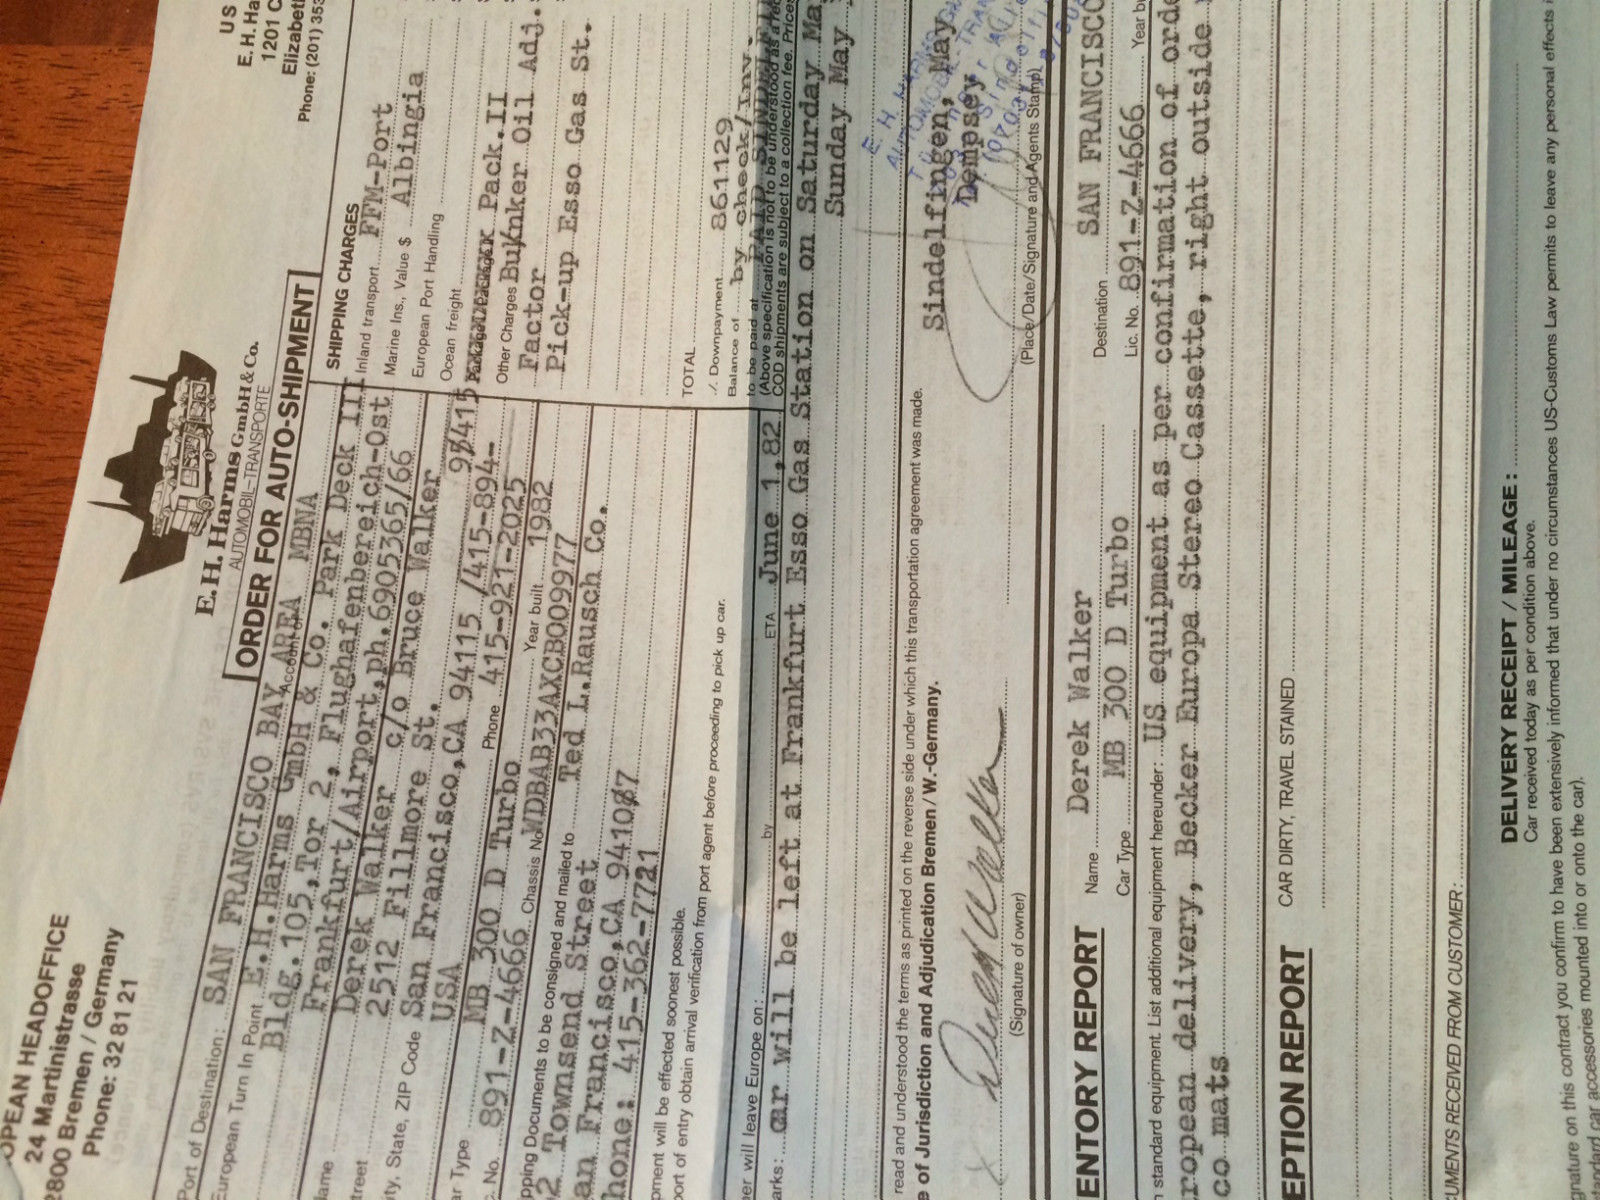 OPEAN HEADOFFICE
24 Martinistrasse
2800 Bremen / Germany
Phone: 32 81 21
E.H. Harms GmbH & Co.
AUTOMOBIL-TRANSPORTE
ORDER FOR AUTO-SHIPMENT
US
E. H. Ha
1201 C
Elizabeth
Phone: (201) 353
Port of Destination: SAN FRANCISCO BAY AREA MBNA
Account of
European Turn In Point E.H.Harms GmbH & Co. Park Deck III
Bldg.105,Tor 2, Flughafenbereich-Ost
Frankfurt/Airport,ph.6905365/66
Name Derek Walker c/o Bruce Walker
treet 2512 Fillmore St.
ty, State, ZIP Code San Francisco,CA 94115 /415-894-
USA
ar Type MB 300 D Turbo Phone 415-921-2025
c. No. 891-Z-4666 Chassis No WDBAB33AXCB009977 Year built 1982
pping Documents to be consigned and mailed to Ted L.Rausch Co.
2 Townsend Street
an Francisco,CA 94107
hone: 415-362-7721
SHIPPING CHARGES
Inland transport FFM-Port
Marine Ins., Value $ Albingia
European Port Handling
Ocean freight
Pack.II
Other Charges Bunker Oil Adj.
Factor
Pick-up Esso Gas St.
TOTAL
./. Downpayment 861129
Balance of by check/Inv.
to be paid at PAID SINDELFIN
(Above specification is not to be understood as a
COD shipments are subject to a collection fee. Prices
pment will be effected soonest possible.
ort of entry obtain arrival verification from port agent before proceeding to pick up car.
er will leave Europe on: by ETA June 1,82
arks: car will be left at Frankfurt Esso Gas Station on Saturday Ma
Sunday May
read and understood the terms as printed on the reverse side under which this transportation agreement was made.
e of Jurisdiction and Adjudication Bremen / W.-Germany.
Sindelfingen, May
Dempsey
E. H. HARMS
X Derek Walker
(Signature of owner)
(Place/Date/Signature and Agents Stamp)
ENTORY REPORT
Name Derek Walker Destination SAN FRANCISCO
Car Type MB 300 D Turbo Lic. No. 891-Z-4666 Year b
n standard equipment. List additional equipment hereunder: US equipment as per confirmation of orde
ropean delivery, Becker Europa Stereo Cassette, right outside
co mats
EPTION REPORT
CAR DIRTY, TRAVEL STAINED
CUMENTS RECEIVED FROM CUSTOMER:
DELIVERY RECEIPT / MILEAGE:
Car received today as per condition above.
nature on this contract you confirm to have been extensively informed that under no circumstances US-Customs Law permits to leave any personal effects i
ndard car accessories mounted into or onto the car).